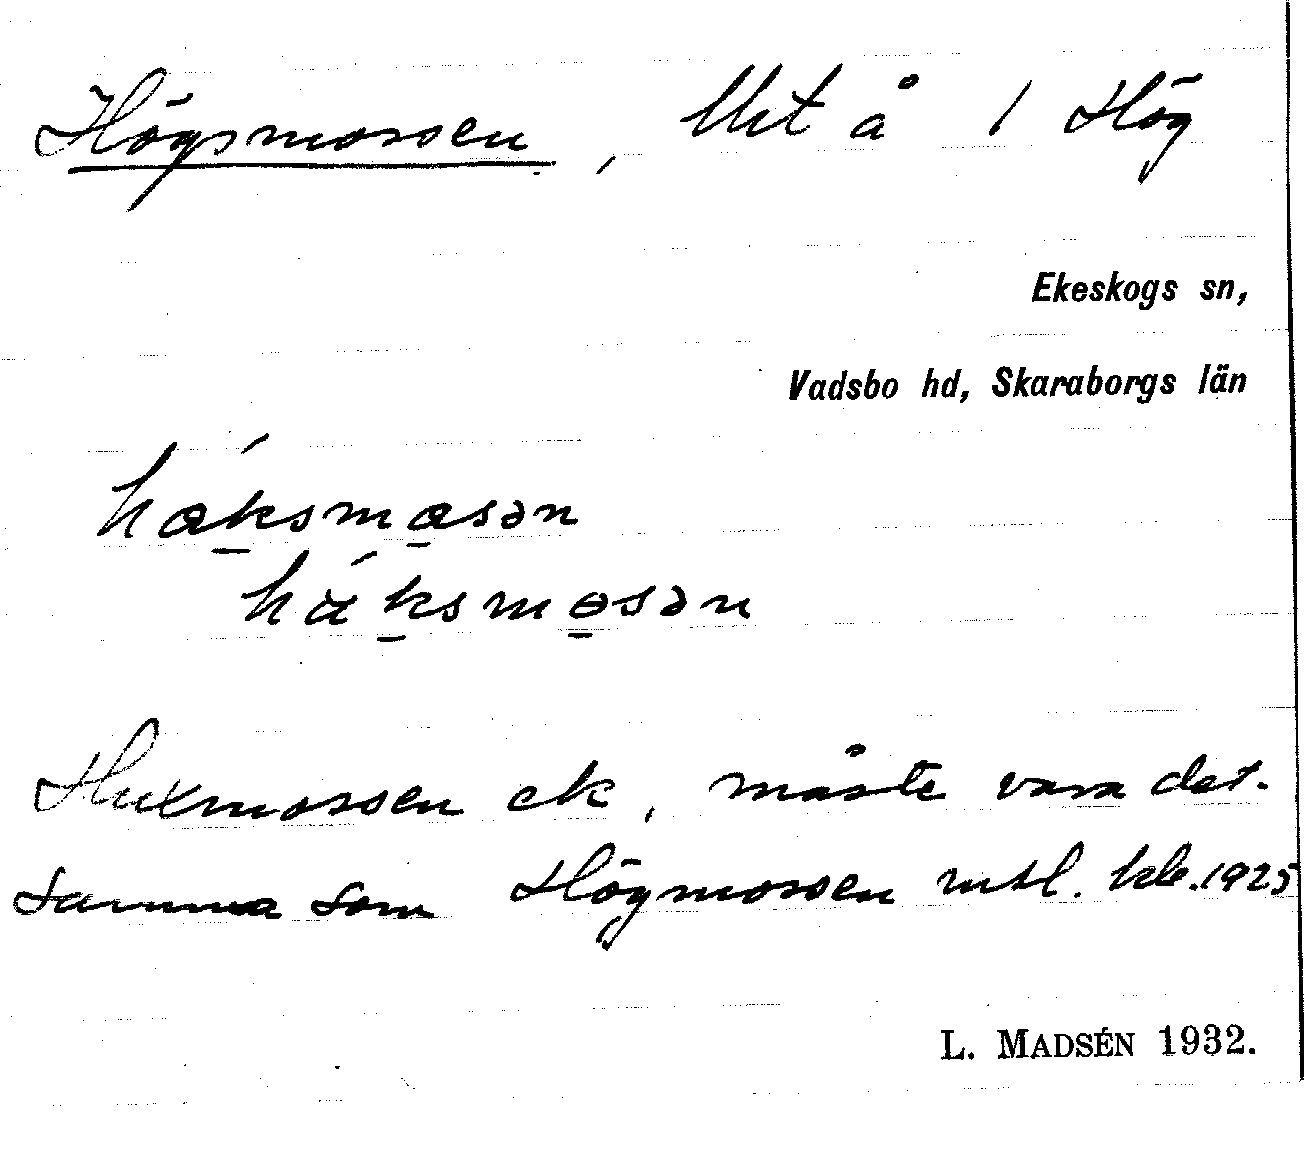 Högsmossen, Utet å 1 Hög
Ekeskogs sn,
Vadsbo hd, Skaraborgs län
Huxmossen ek, måste vara det-
samma som Högmossen mtl. kb. 1925
L. MADSÉN 1932.